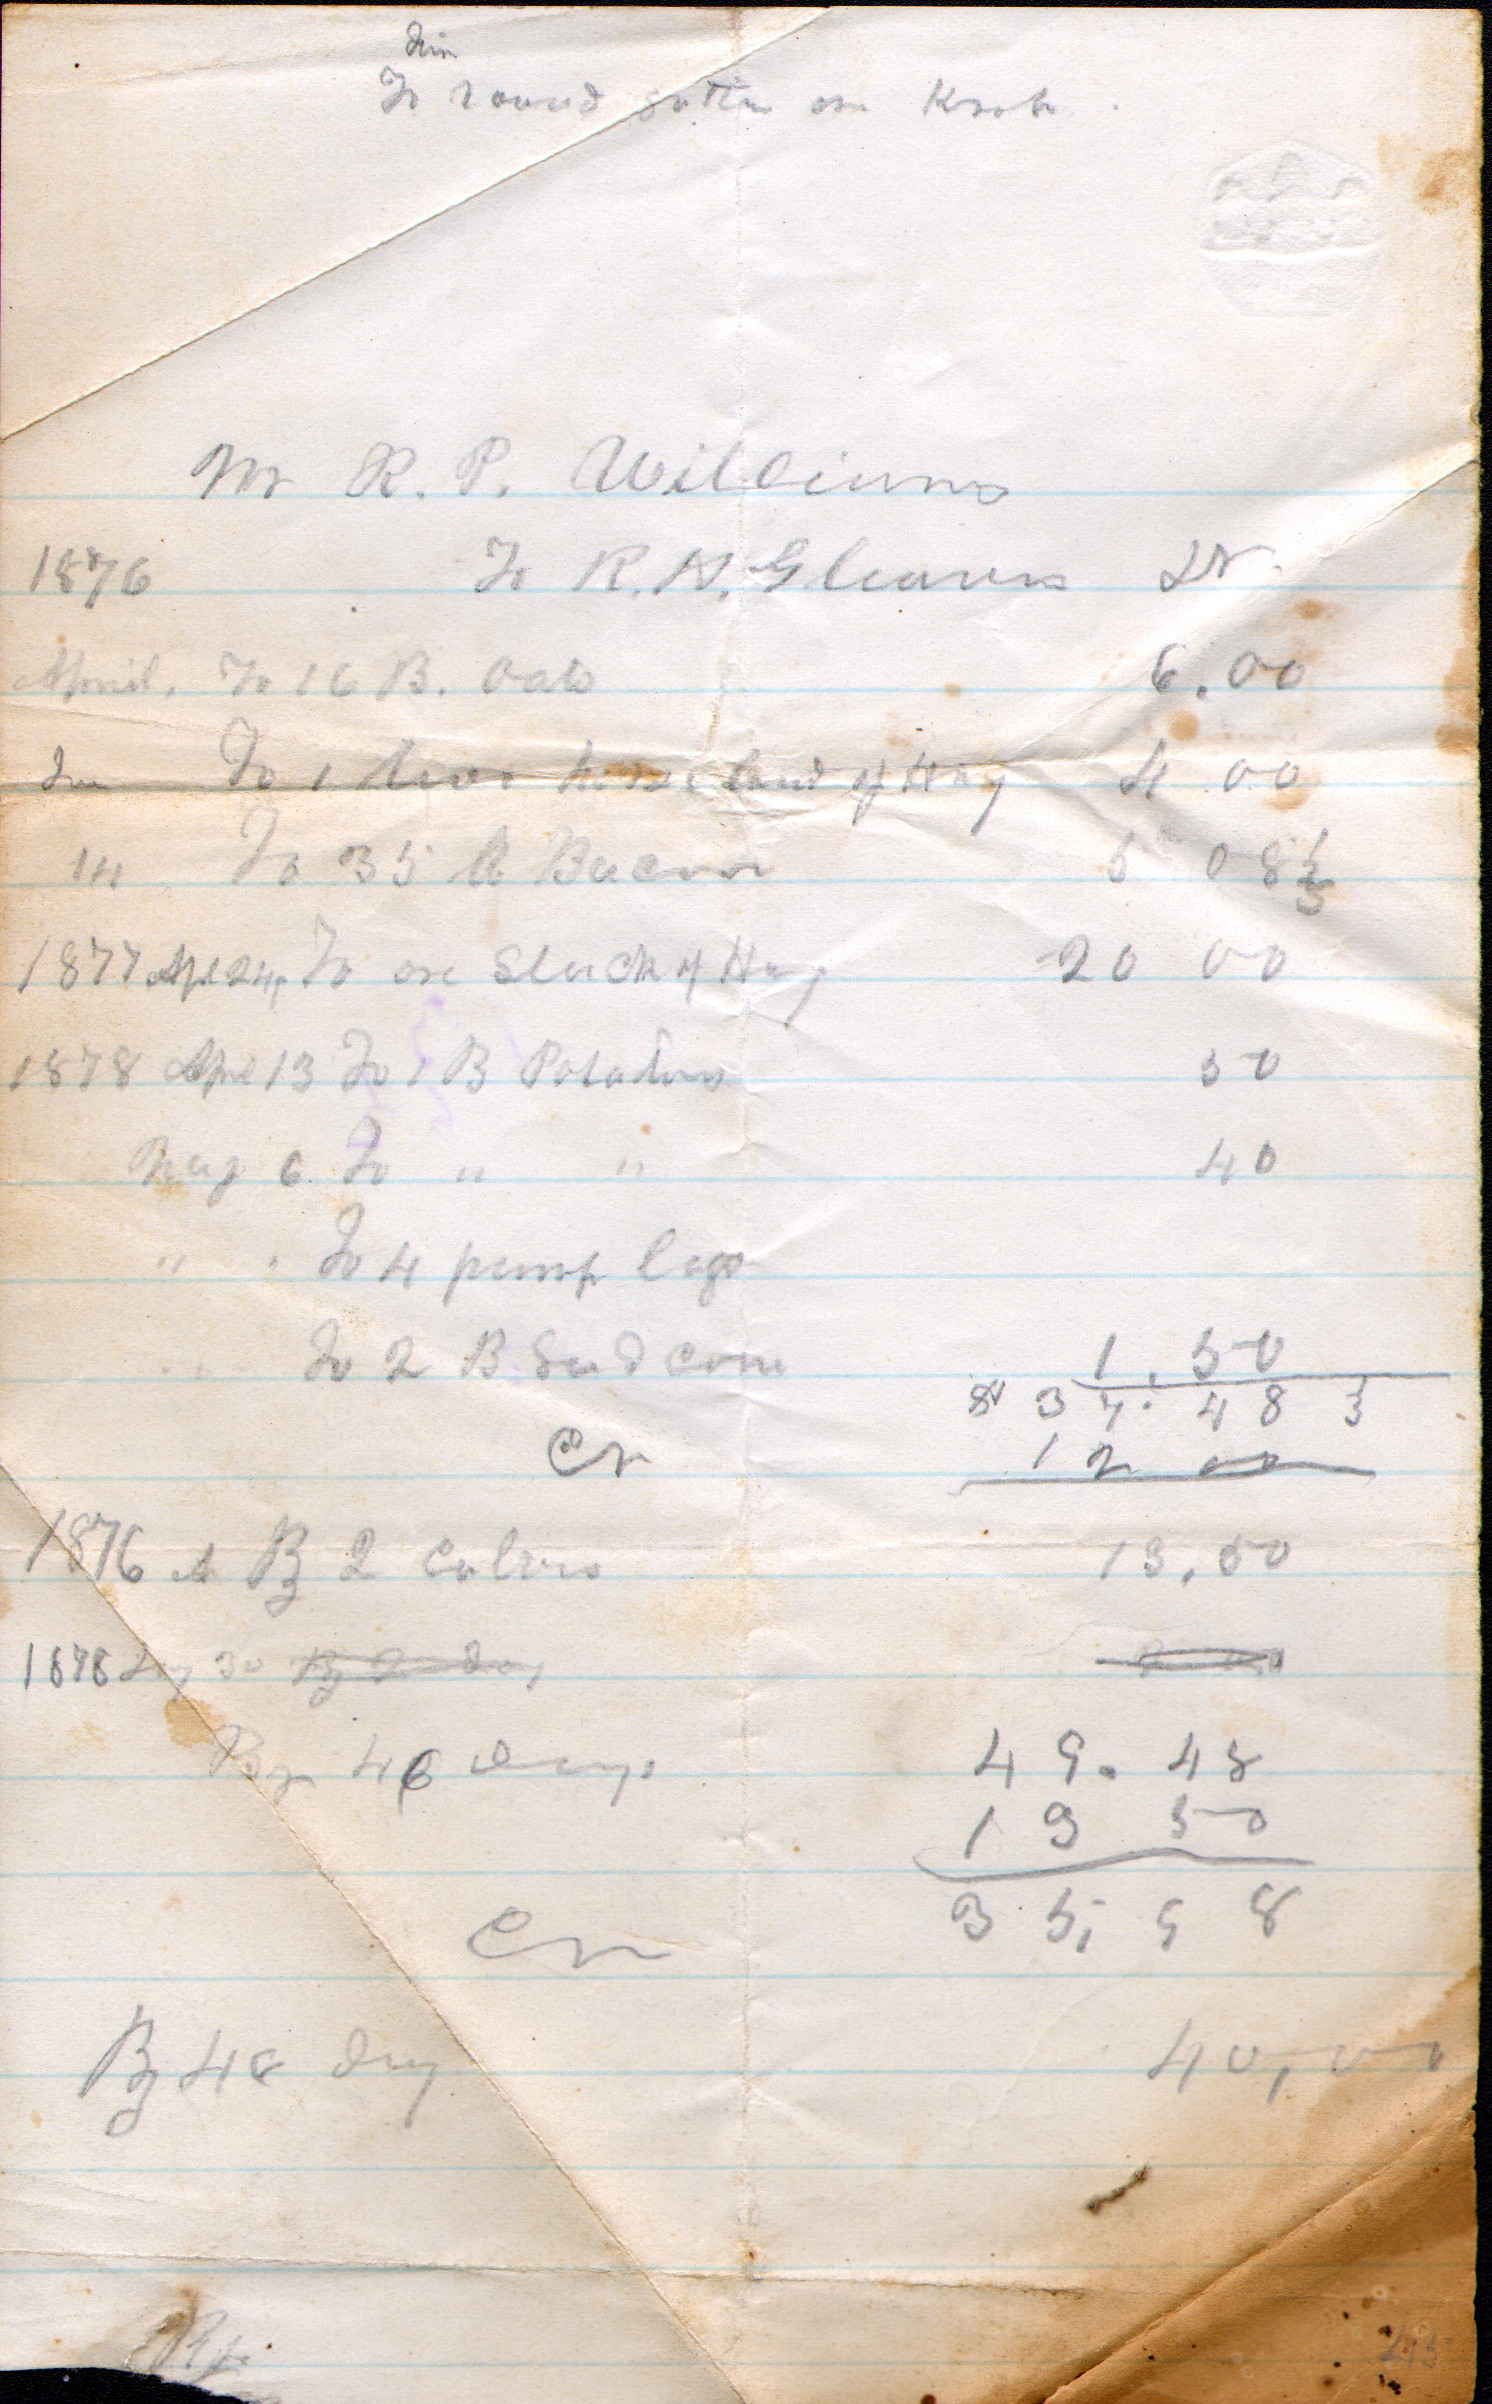 To round on Knob
Mr R. P. Williams
1876 To R. N. Gleaves Dr.
April, To 16 B. Oats 6.00
To 1 two horse load of Hay 4 00
To 35 lb Bacon 5 08 1/3
1877 Apl 24, To one Stack of Hay 20 00
1878 Apl 13 To 1 B Potatoes 50
May 6 To " " 40
" " To 4 pump logs
" To 2 B Seed Corn 1.50
$ 37.48 3
Cr 12 00
1876 By 2 Calves 13,50
1878 30 By 2 Day
By 46 Days 49.48
13 50
35,98
Cr
By 48 Day 40,00